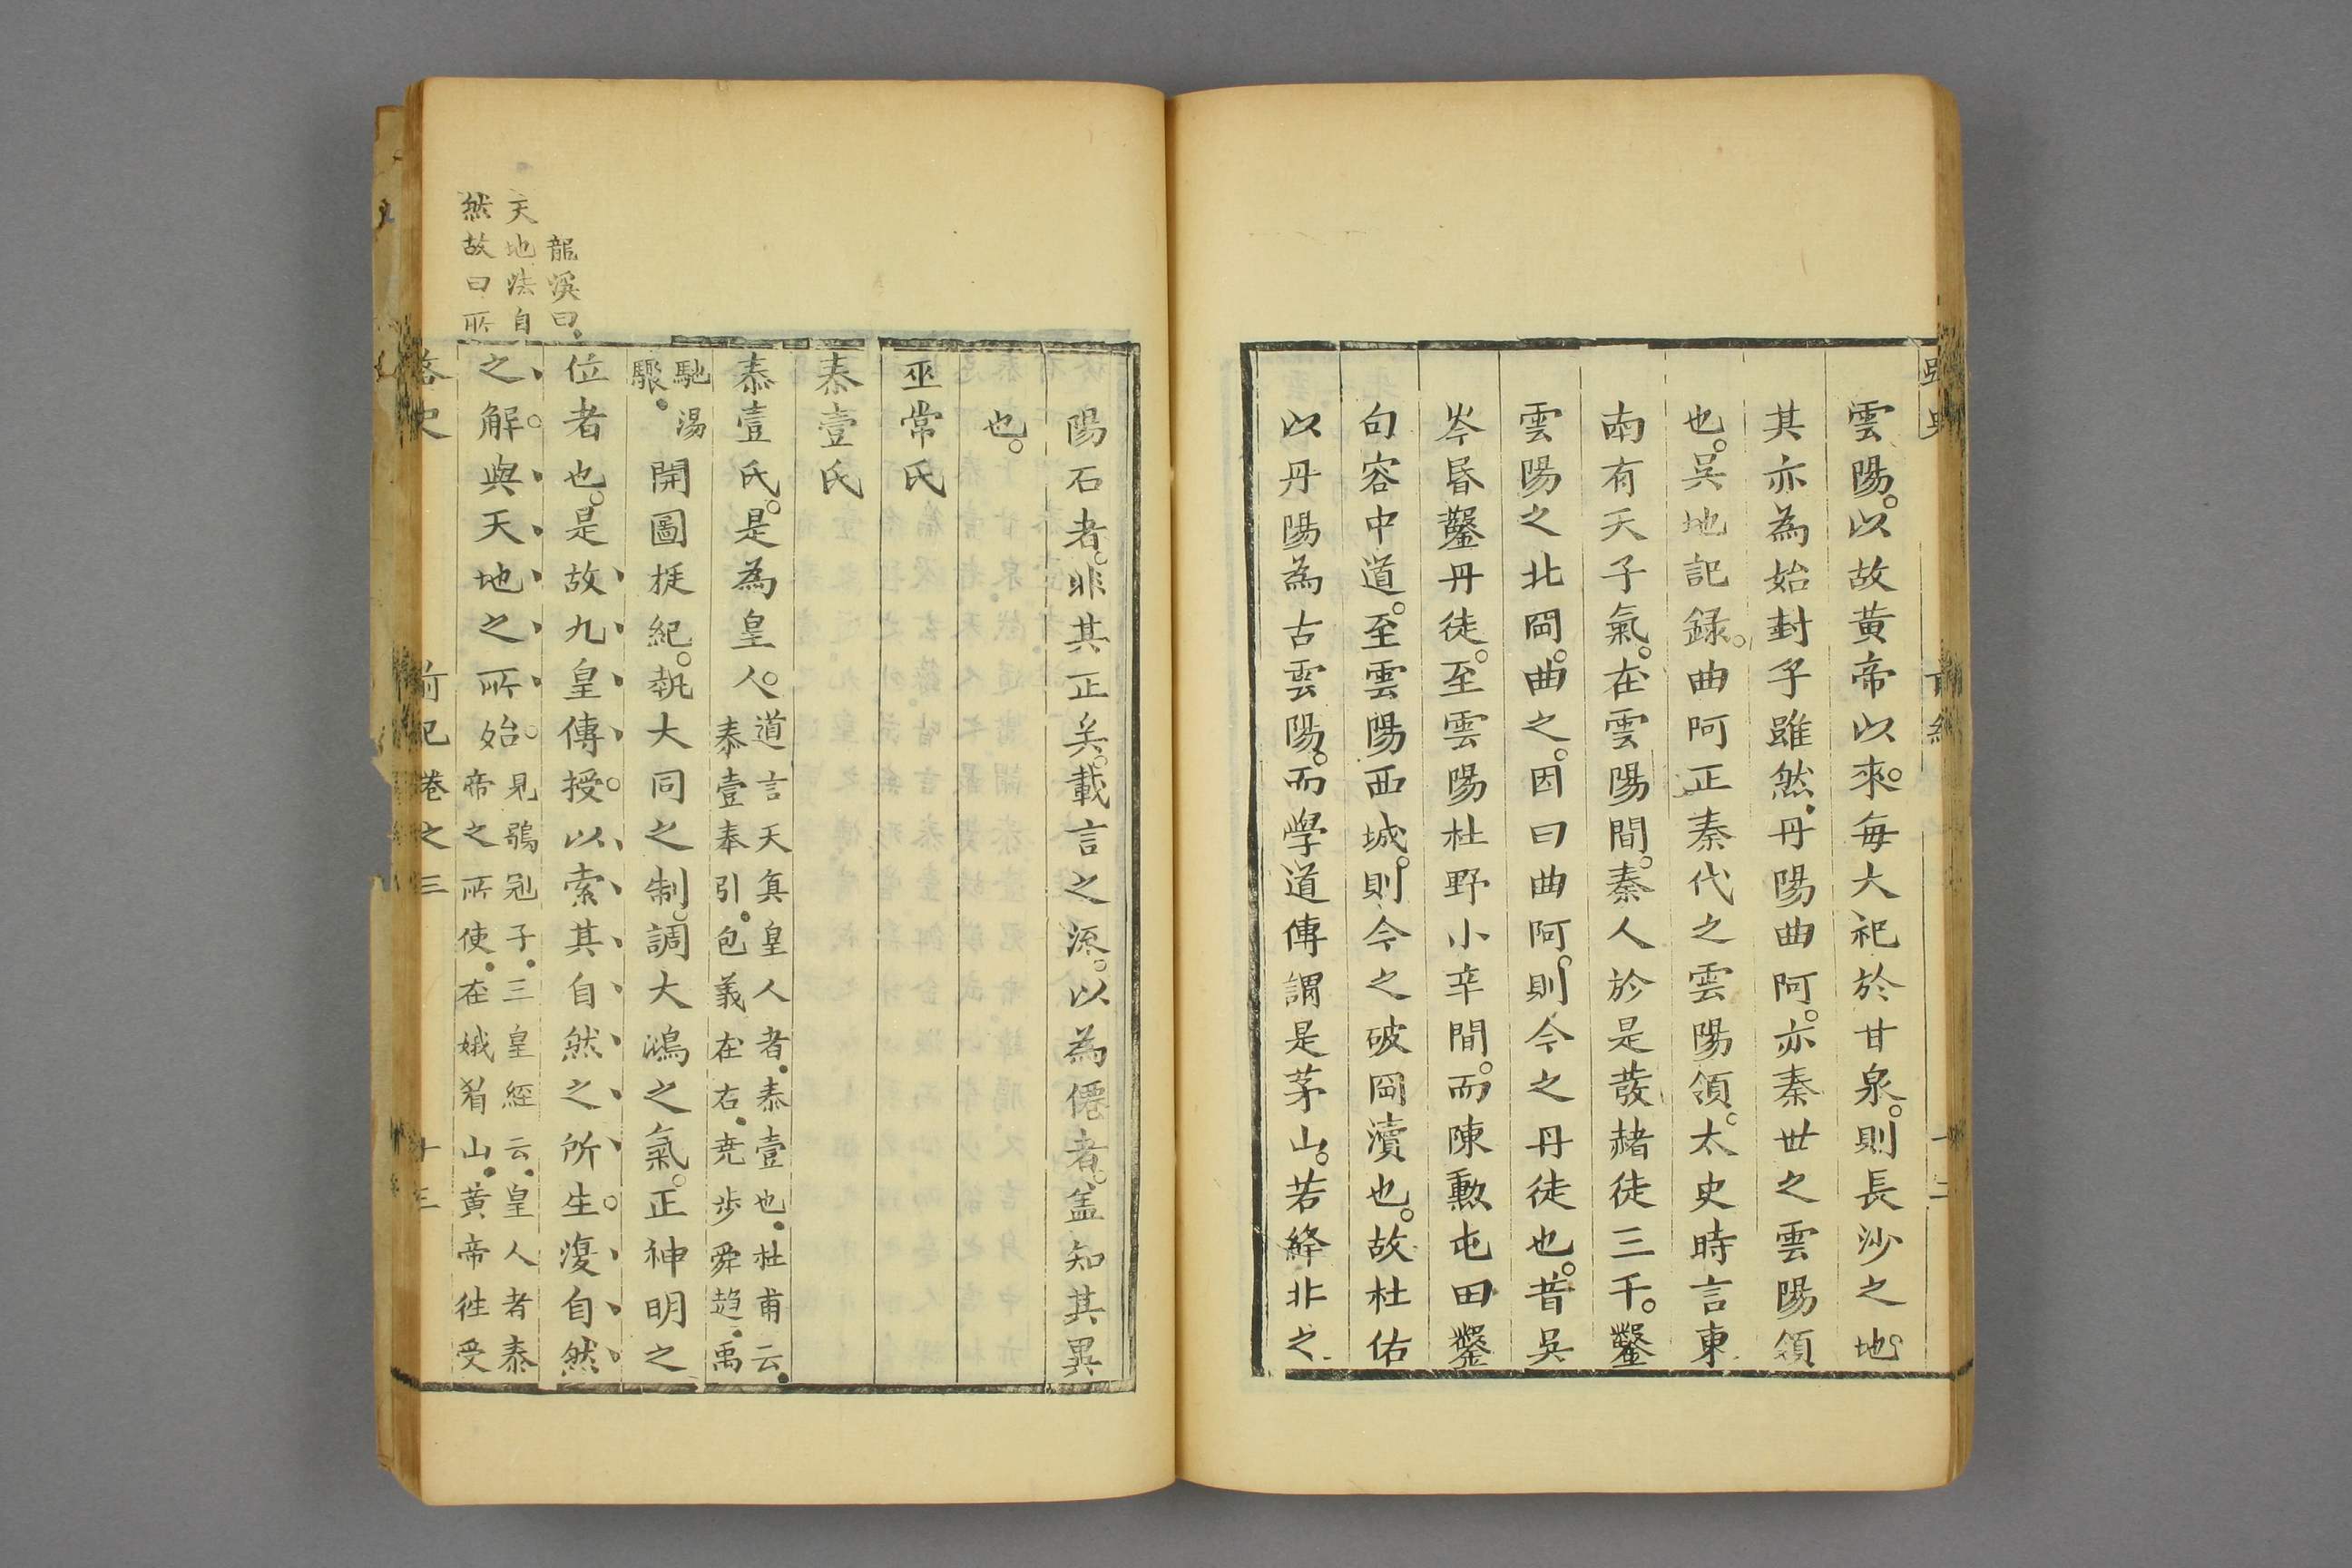 雲陽。以故黃帝以來。每大祀於甘泉。則長沙之地。
其亦為始封乎雖然。丹陽曲阿。亦秦世之雲陽領
也。吳地記録。曲阿正秦代之雲陽領。太史時言東
南有天子氣。在雲陽間。秦人於是發赭徒三千。鑿
雲陽之北岡。曲之。因曰曲阿。則今之丹徒也。昔吳
岑昬鑿丹徒。至雲陽杜野小辛間。而陳勳屯田鑿
句容中道。至雲陽西城。則今之破岡瀆也。故杜佑
以丹陽為古雲陽。而學道傳謂是茅山。若絳北之
陽石者。非其正矣。載言之源。以為僊者。盖知其異
也。
巫常氏
泰壹氏
泰壹氏。是為皇人。道言天真皇人者。泰壹也。杜甫云。
泰壹奉引。包羲在右。尭步舜趋。禹
馳湯
驟。開圖挻紀。執大同之制。調大鴻之氣。正神明之
位者也。是故九皇傳授。以索其自然之所生。復自然
之解。與天地之所始。見鶡冠子。三皇經云。皇人者泰
帝之所使。在峨眉山。黄帝徃受
路史 前紀卷之三 十三
龍溪曰。
天地法自
然故曰所